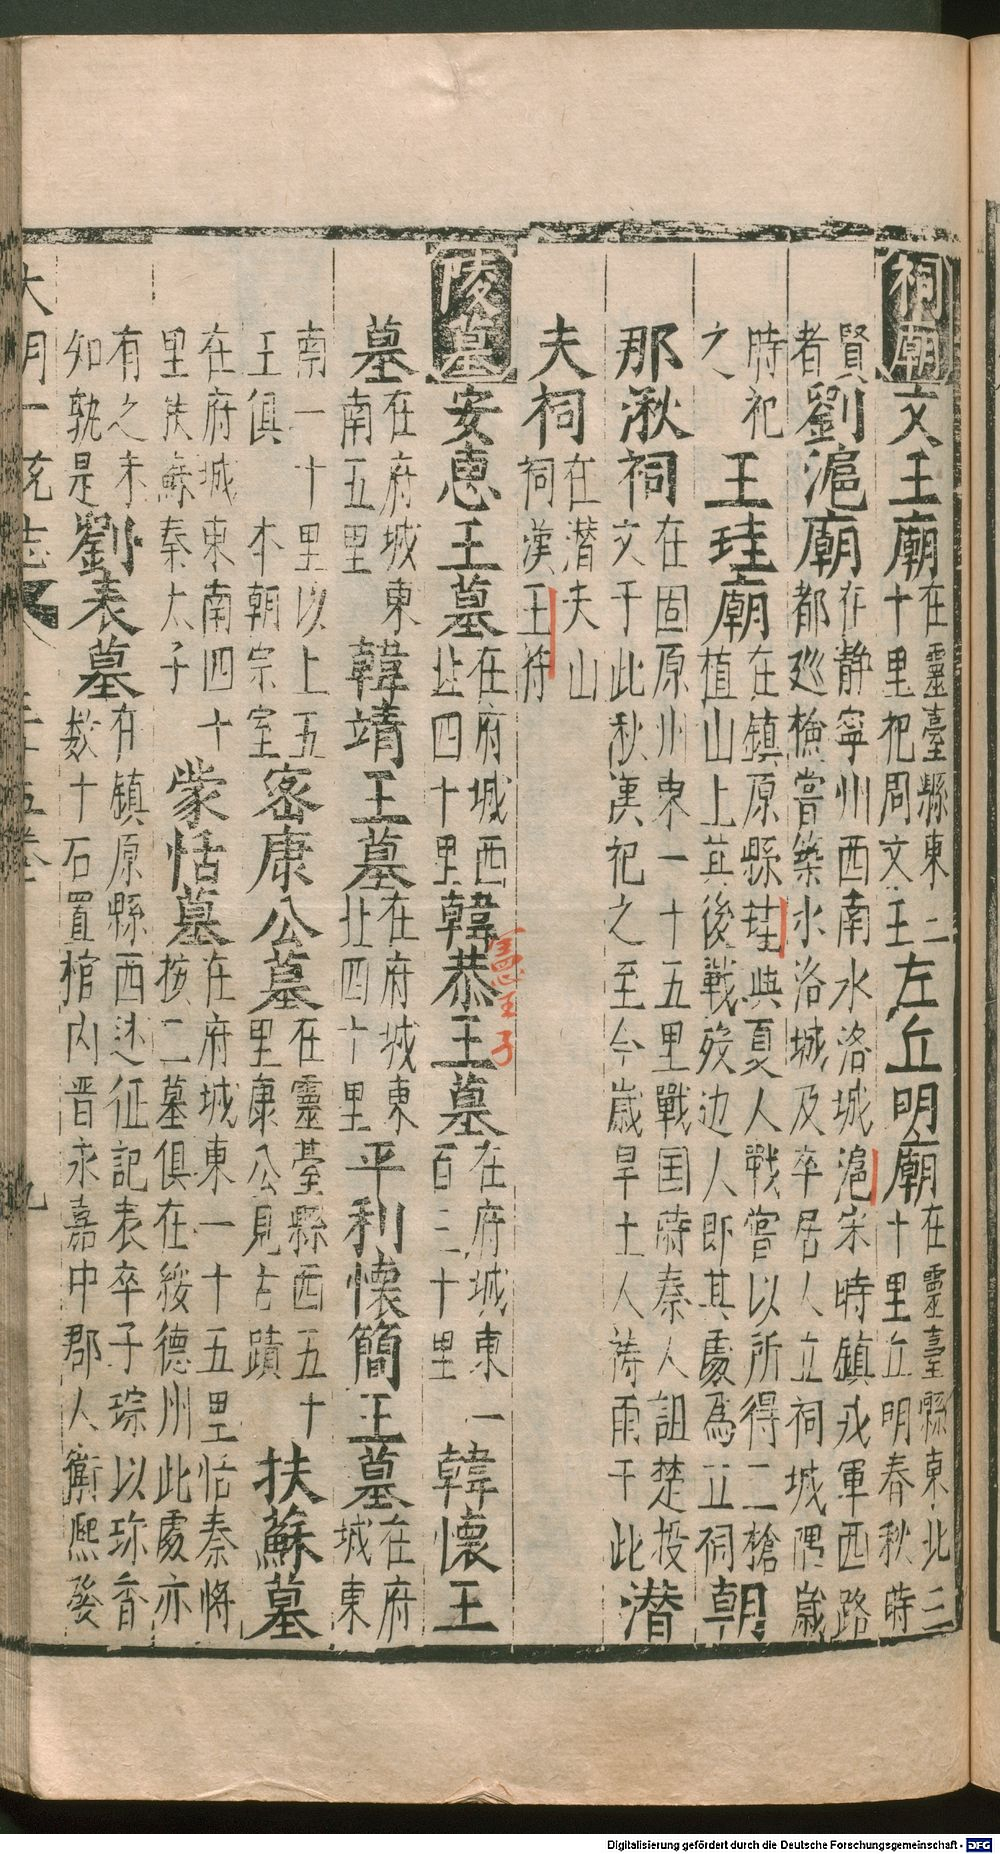 祠廟文王廟在靈臺縣東二十里祀周文王左丘明廟在靈臺縣東北三十里丘明春秋時
賢者劉滬廟在静寧州西南水洛城滬宋時鎮戎軍西路都巡檢嘗築水洛城及卒居人立祠城隅歲
時祀之王珪廟在鎮原縣珪與夏人戰嘗以所得二槍植山上其後戰歿边人即其處為立祠朝
那湫祠在固原州東一十五里戰国時秦人詛楚投文于此秋漢祀之至今歲旱土人禱雨于此潜
夫祠在潜夫山祠漢王符
陵墓安惠王墓在府城西北四十里韓恭王墓在府城東一百二十里韓懷王
憲王子
墓在府城東南五里韓靖王墓在府城東北四十里平利懷簡王墓在府城東
南一十里以上五王俱本朝宗室密康公墓在靈臺縣西五十里康公見古蹟扶蘇墓
在府城東南四十里扶蘇秦太子蒙恬墓在府城東一十五里恬秦將按二墓俱在綏德州此處亦
有之未知孰是劉表墓在鎮原縣西述征記表卒子琮以珎香数十石置棺内晋永嘉中郡人衡熙發
大明一统志 三十五卷 九
Digitalisierung gefördert durch die Deutsche Forschungsgemeinschaft - DFG